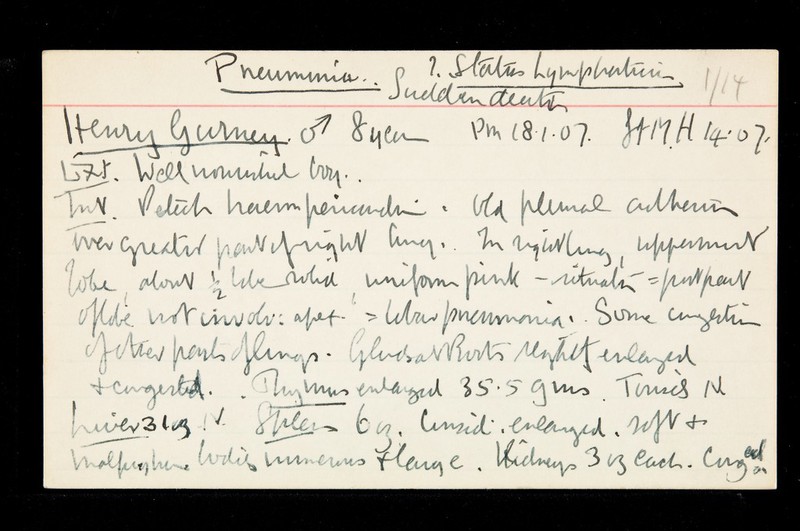 Pneumonia. ? Status Lymphaticus 1/14
Sudden death
Henry Gurney. ♂ 8 year PM 18.1.07. St M. H 14.07.
Ext. Well nourished boy.
Int. Petech haem pericardium. Old pleural adhesions
over greater part of right lung. In right lung, uppermost
lobe, about ½ lobe solid, uniform pink - situated = post part
of lobe not involv: apex. = lobar pneumonia. Some congestion
of other parts of lungs. Glands at Roots slightly enlarged
+ congested. Thymus enlarged 35.5 gms. Tonsils N
Liver 31 oz N. Spleen 6 oz. Consid. enlarged. soft +
malpighian bodies numerous + large. Kidneys 3 oz each. Conged